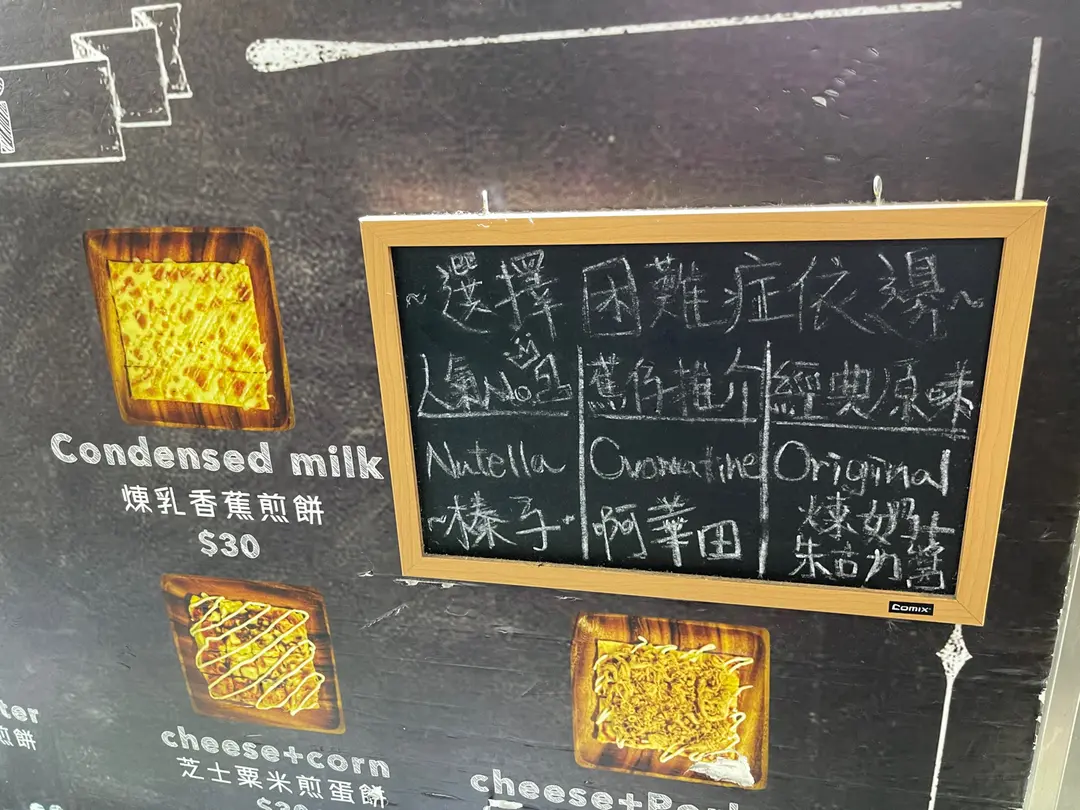 ~選擇困難症依邊~
人氣No.1
Nutella
~榛子~
蕉仔推介
Ovomaltine
啊華田
經典原味
Original
煉奶+
朱古力醬
Comix
Condensed milk
煉乳香蕉煎餅
$30
cheese+corn
芝士粟米煎蛋餅
ter
煎餅
cheese+Pork